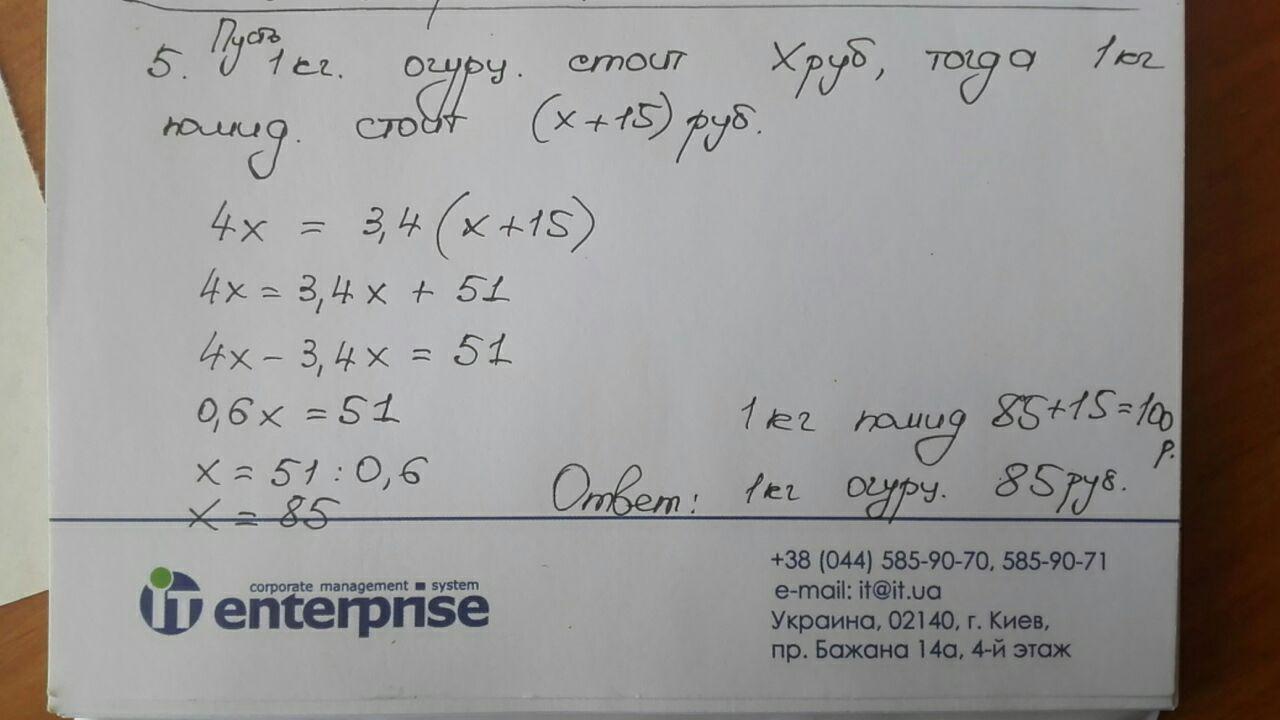 5. Пусть 1кг. огуру. стоит X руб, тогда 1кг
помид. стоит (x+15) руб.
4x = 3,4(x+15)
4x = 3,4x + 51
4x - 3,4x = 51
0,6x = 51
x = 51 : 0,6
x = 85
1кг помид 85+15=100 р.
Ответ: 1кг огуру. 85руб.
corporate management system
it enterprise
+38 (044) 585-90-70, 585-90-71
e-mail: it@it.ua
Украина, 02140, г. Киев,
пр. Бажана 14а, 4-й этаж